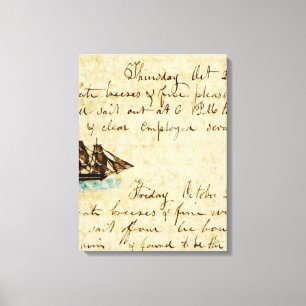 Thursday Oct 2
ate breezes & fine pleas
d sail out at 6 P.M. t
& clear Employed seve
Friday October 2
ate breezes & fine we
sail of our
& found to be the